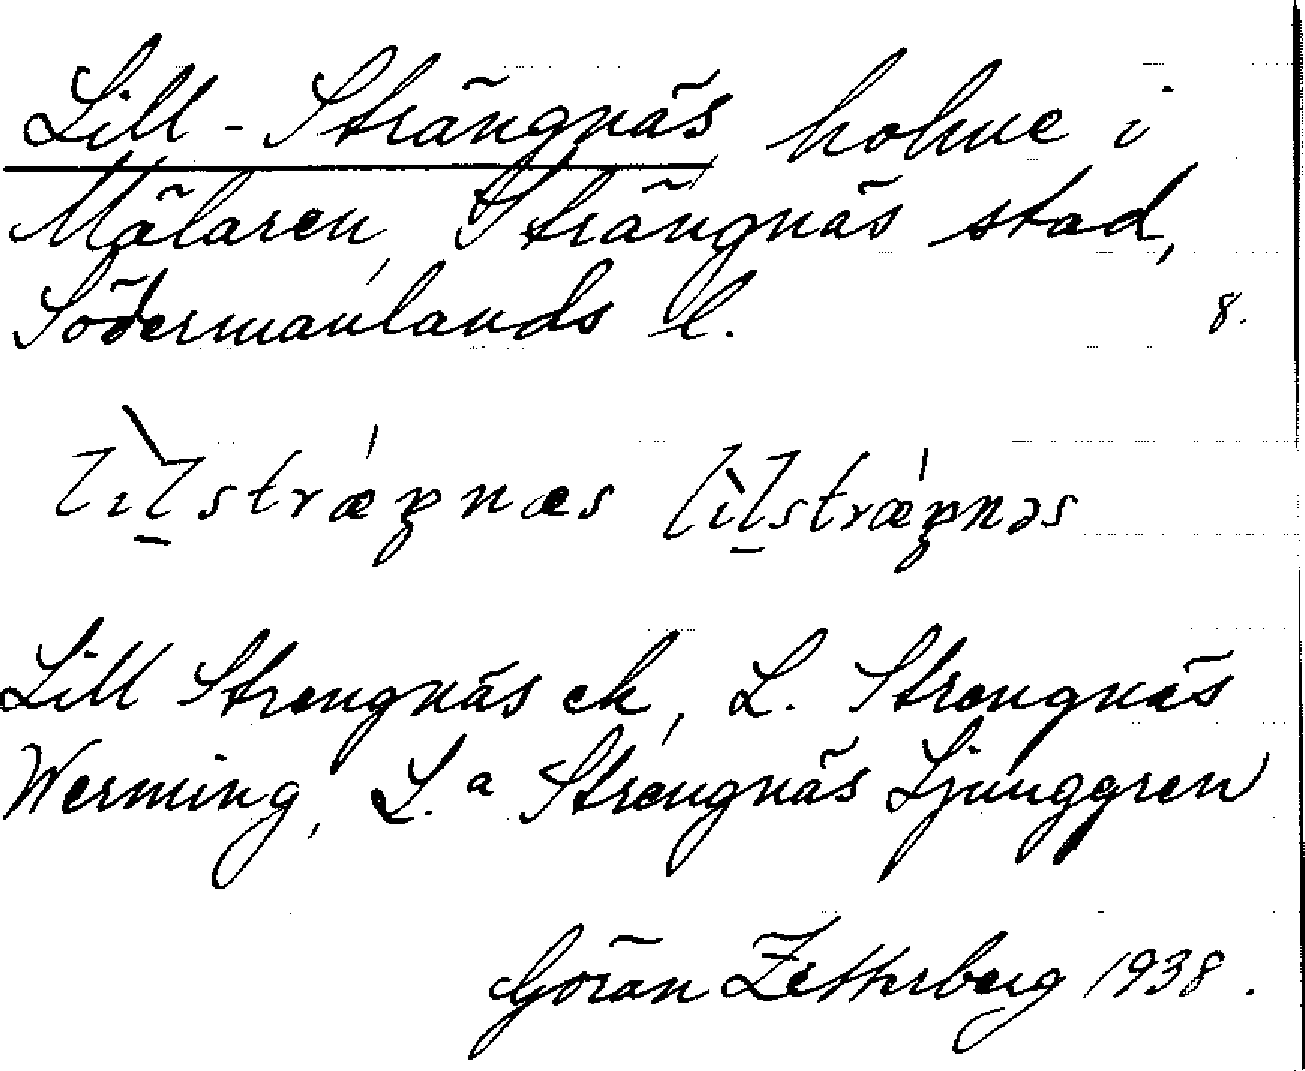 Lill-Strängnäs holme i
Mälaren, Strängnäs stad,
Södermanlands l. 8.
lìlstrǽŋnæs lìlstrǽŋnəs
Lill Strengnäs ek, L. Strengnäs
Werming, L.a Strengnäs Ljunggren
Göran Zetterberg 1938.